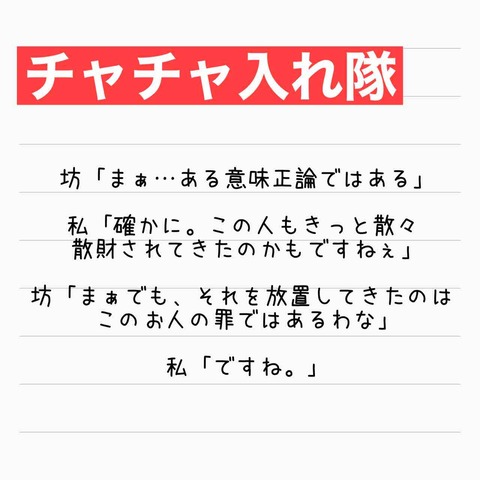 チャチャ入れ隊
坊「まぁ…ある意味正論ではある」
私「確かに。この人もきっと散々
散財されてきたのかもですねぇ」
坊「まぁでも、それを放置してきたのは
このお人の罪ではあるわな」
私「ですね。」